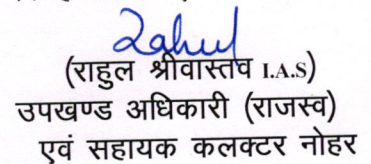 Rahul
(राहुल श्रीवास्तव I.A.S)
उपखण्ड अधिकारी (राजस्व)
एवं सहायक कलक्टर नोहर